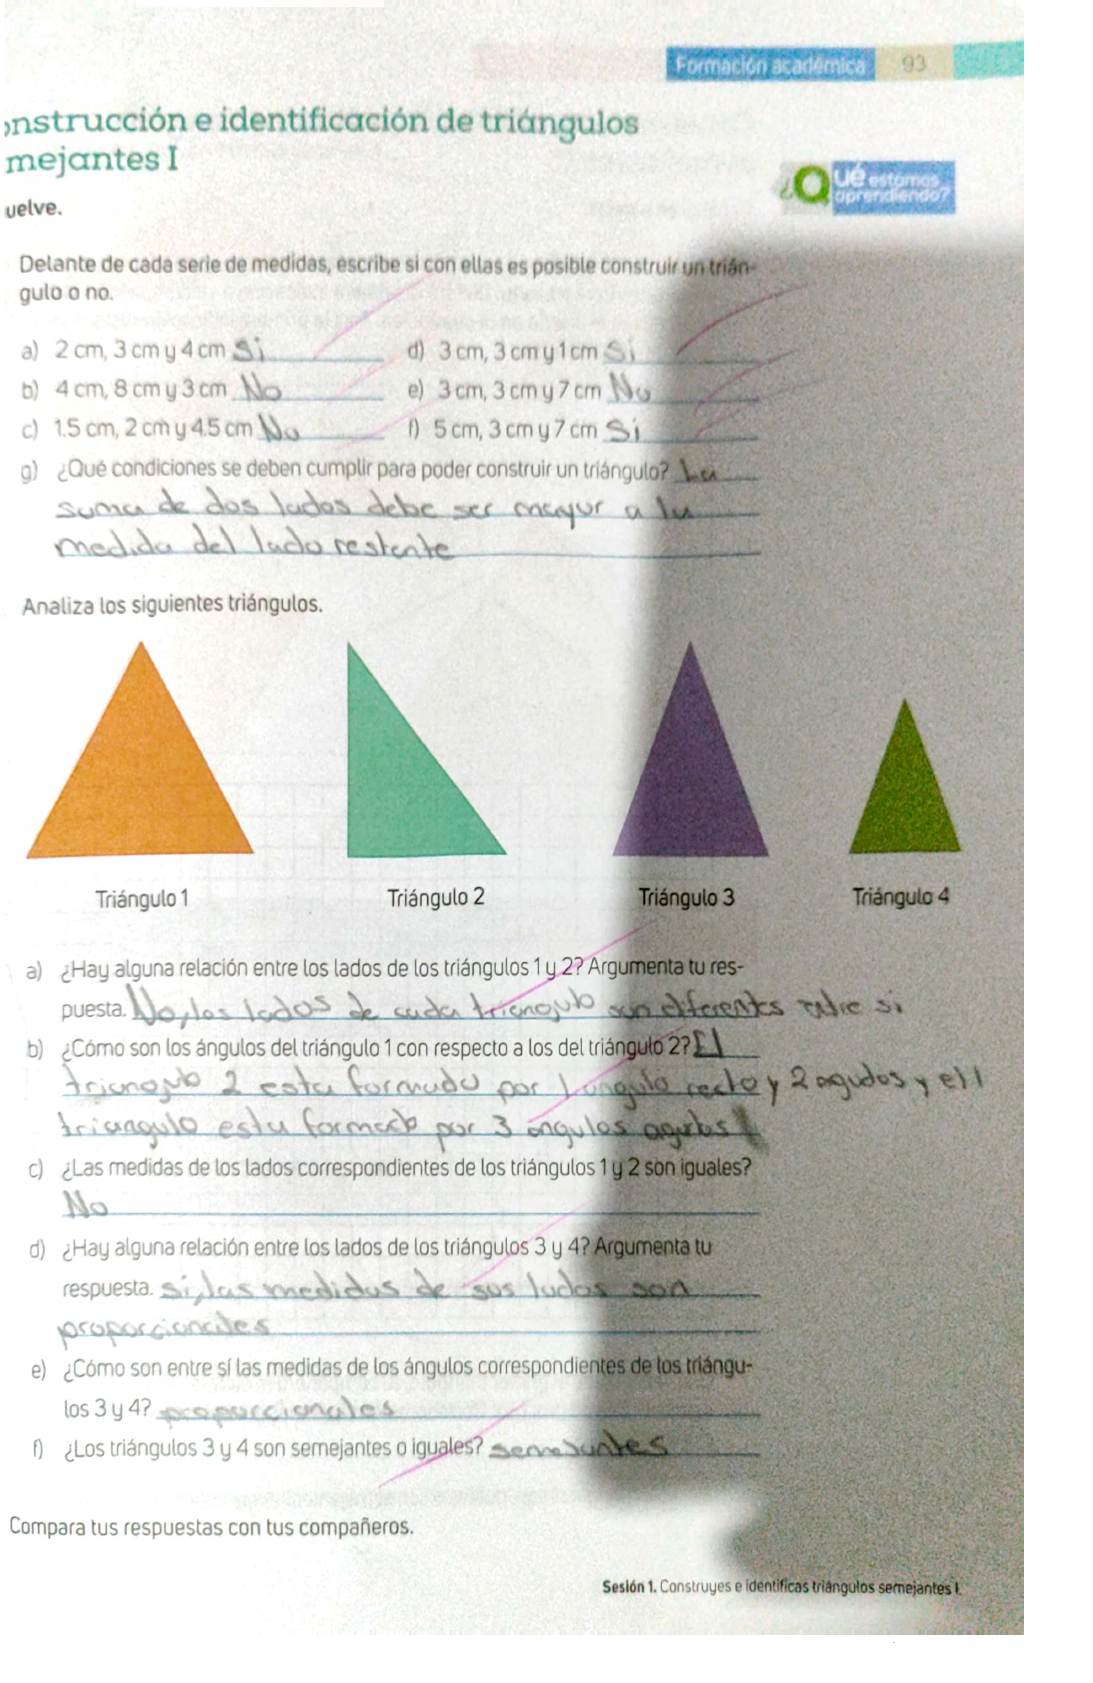 Formación académica 93
onstrucción e identificación de triángulos
mejantes I
¿Qué estamos
aprendiendo?
uelve.
Delante de cada serie de medidas, escribe si con ellas es posible construir un trián-
gulo o no.
a) 2 cm, 3 cm y 4 cm Si d) 3 cm, 3 cm y 1 cm Si
b) 4 cm, 8 cm y 3 cm No e) 3 cm, 3 cm y 7 cm No
c) 1.5 cm, 2 cm y 4.5 cm No f) 5 cm, 3 cm y 7 cm Si
g) ¿Qué condiciones se deben cumplir para poder construir un triángulo? La
suma de dos lados debe ser mayor a la
medida del lado restante
Analiza los siguientes triángulos.
Triángulo 1 Triángulo 2 Triángulo 3 Triángulo 4
a) ¿Hay alguna relación entre los lados de los triángulos 1 y 2? Argumenta tu res-
puesta. No, los lados de cada triangulo son diferentes entre si
b) ¿Cómo son los ángulos del triángulo 1 con respecto a los del triángulo 2? El
triangulo 2 esta formado por 1 angulo recto y 2 agudos y el 1
triangulo esta formado por 3 angulos agudos
c) ¿Las medidas de los lados correspondientes de los triángulos 1 y 2 son iguales?
No
d) ¿Hay alguna relación entre los lados de los triángulos 3 y 4? Argumenta tu
respuesta. si, las medidas de sus lados son
proporcionales
e) ¿Cómo son entre sí las medidas de los ángulos correspondientes de los triángu-
los 3 y 4? proporcionales
f) ¿Los triángulos 3 y 4 son semejantes o iguales? semejantes
Compara tus respuestas con tus compañeros.
Sesión 1. Construyes e identificas triángulos semejantes I.